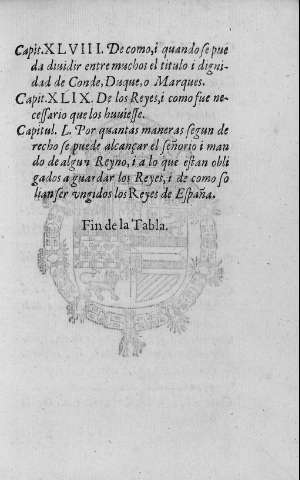 Capit. XLVIII. De como, i quando se pue
da diuidir entre muchos el titulo i digni
dad de Conde, Duque, o Marques.
Capit. XLIX. De los Reyes, i como fue ne-
cessario que los huuiesse.
Capitul. L. Por quantas maneras segun de
recho se puede alcançar el señorio i man
do de algun Reyno, i a lo que estan obli
gados a guardar los Reyes, i de como so
lian ser vngidos los Reyes de España.
Fin de la Tabla.